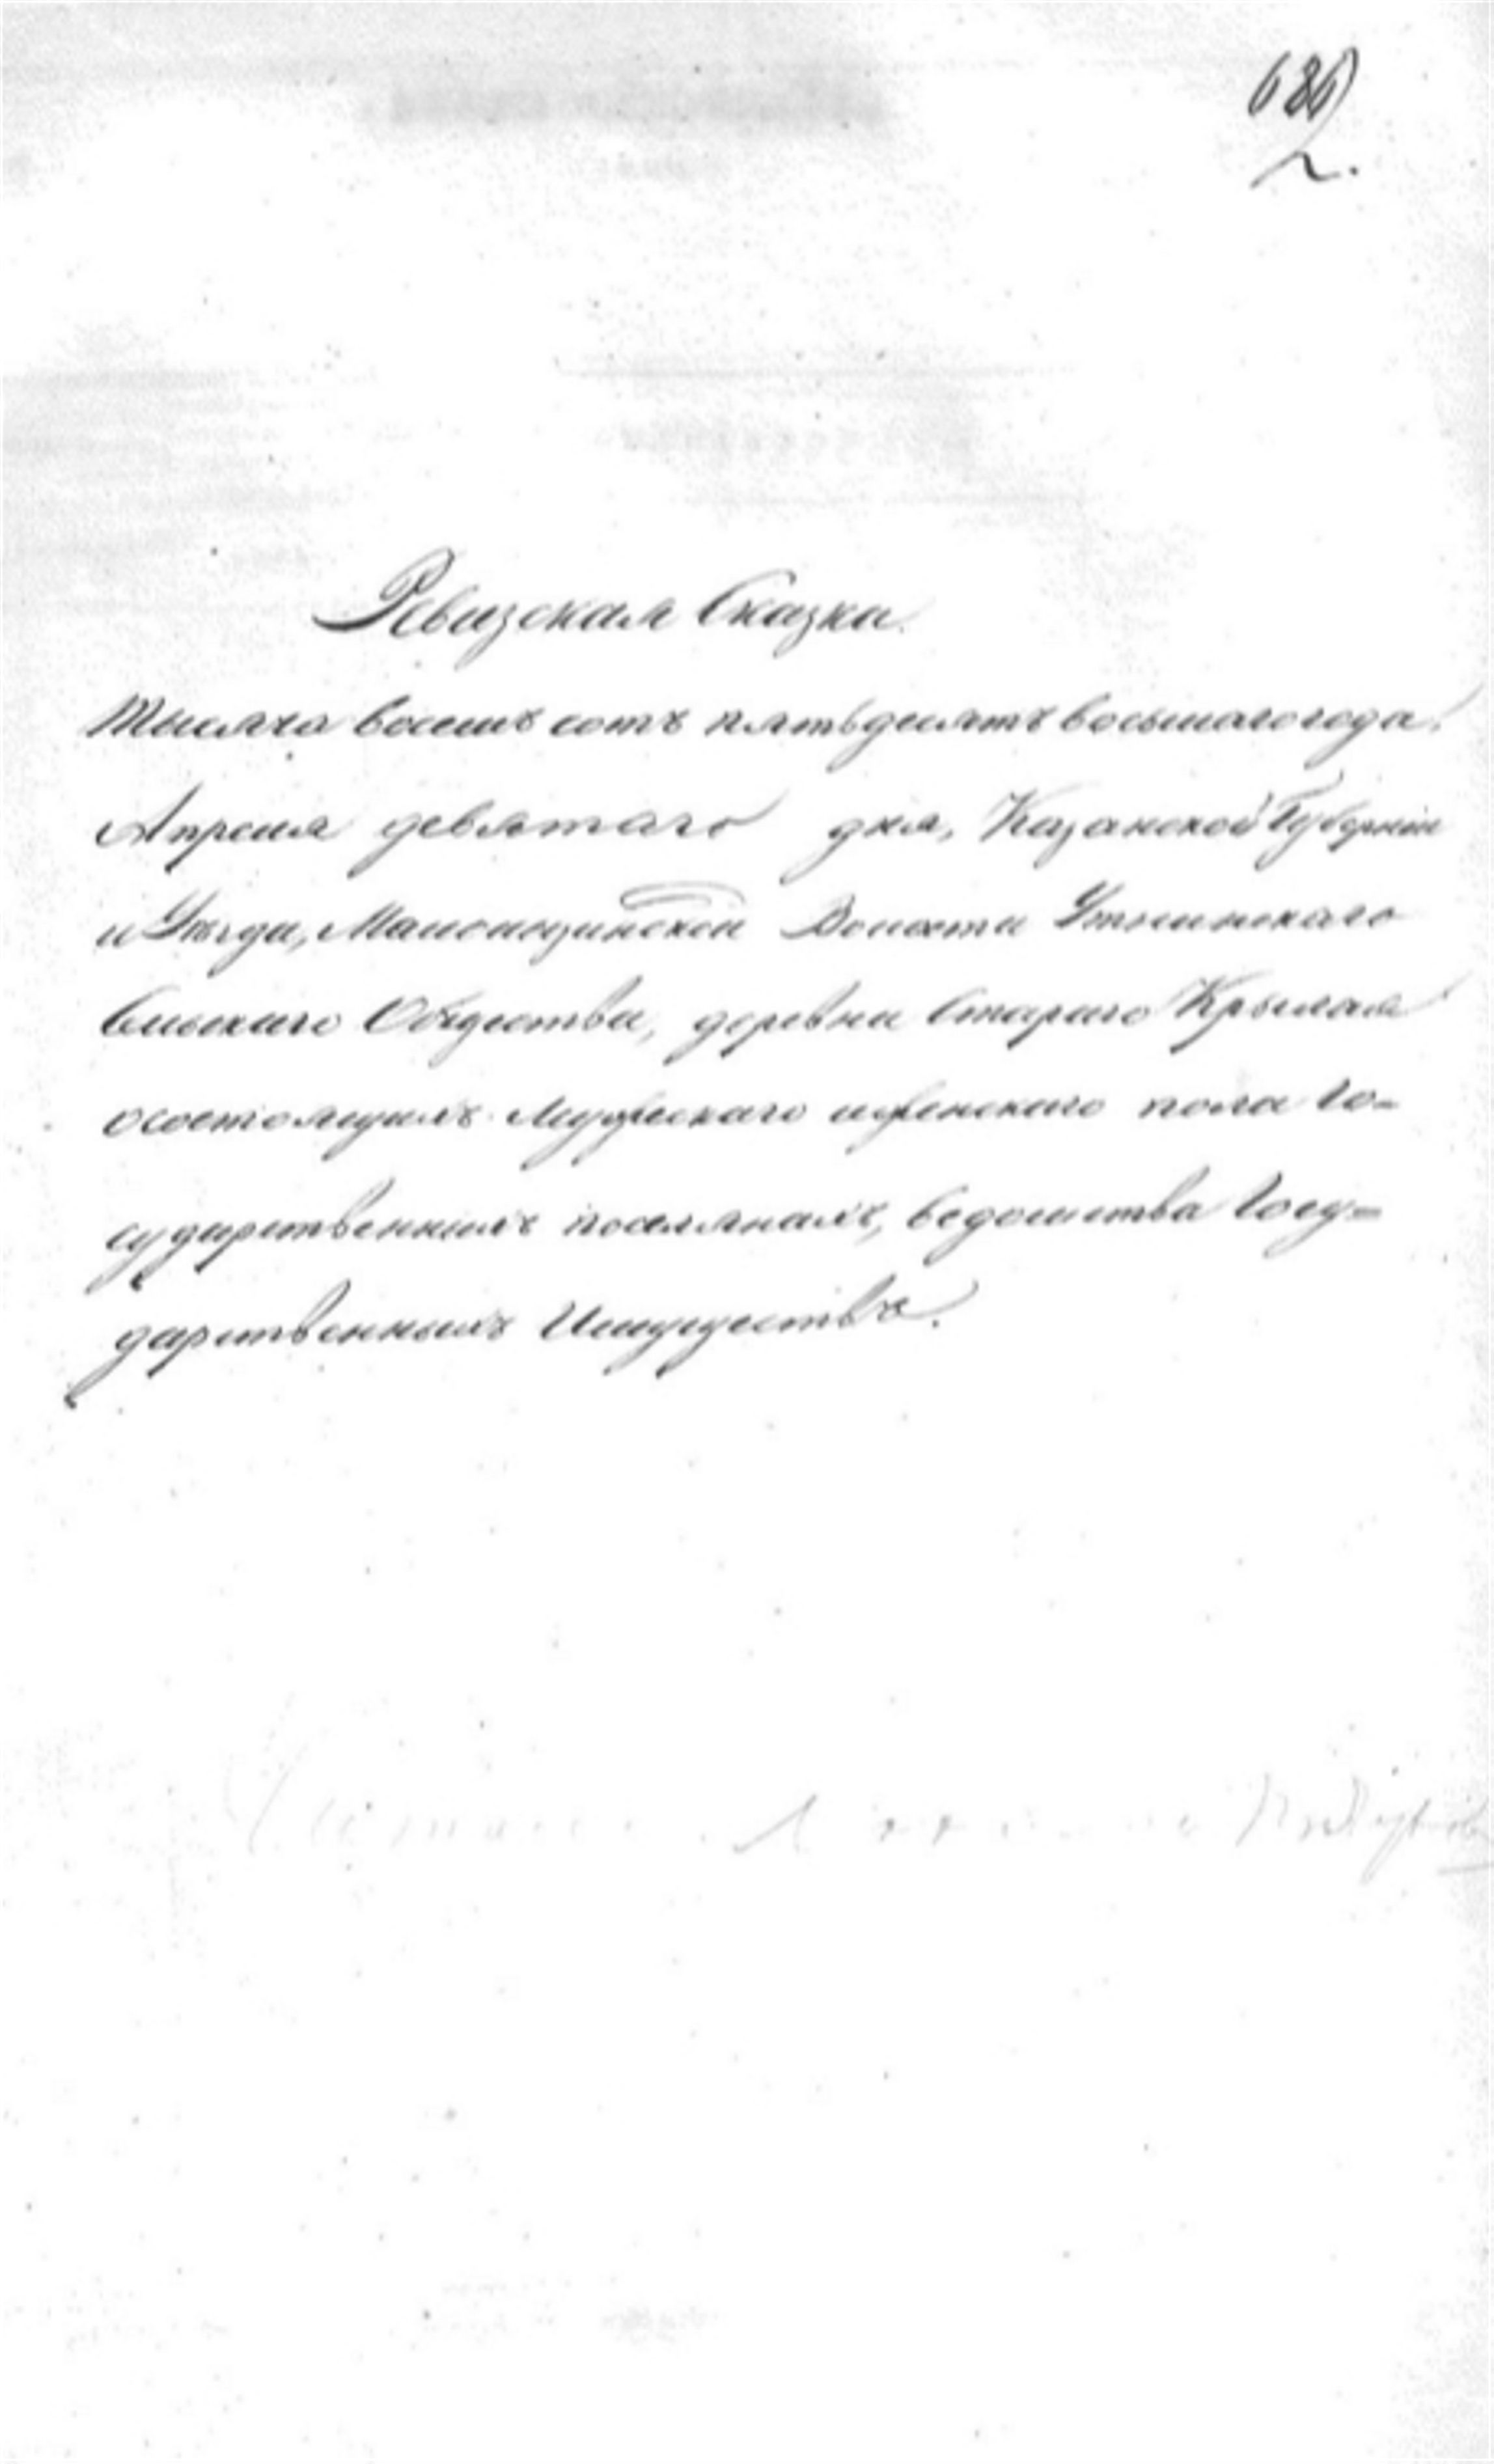 686
2.
Ревизская Сказка.
Тысяча восемь сотъ пятьдесятъ восьмаго года,
Апреля девятаго дня, Казанской Губерніи
и Уѣзда, Мамонинской Волости
Сельскаго Общества, деревни Стараго Крылая
о состоящихъ мужескаго и женскаго пола Го-
сударственныхъ поселянахъ, ведомства Госу-
дарственныхъ Имуществъ.